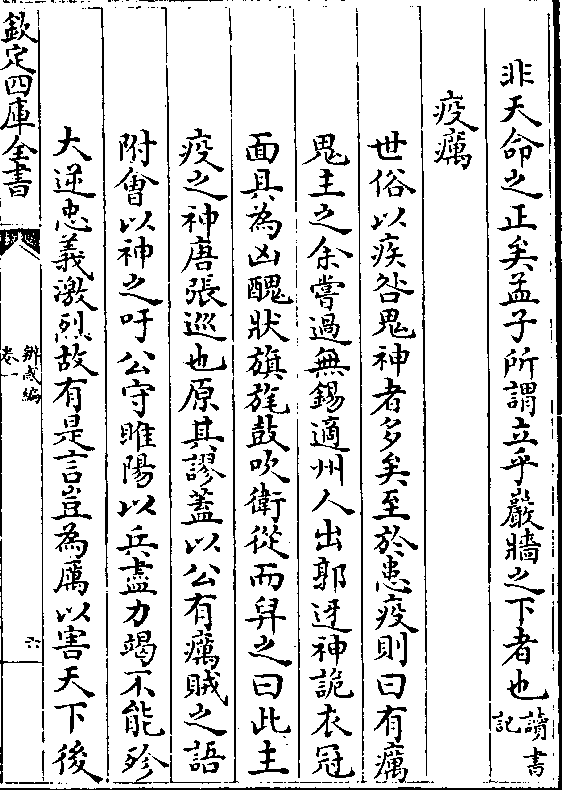 非天命之正矣孟子所謂立乎巖牆之下者也讀書記
疫癘
世俗以疾咎鬼神者多矣至於患疫則曰有癘
鬼主之余嘗過無錫適州人出郭迓神詭衣冠
面具為凶醜狀旗旄鼓吹衛從而舁之曰此主
疫之神唐張巡也原其謬蓋以公有癘賊之語
附會以神之吁公守睢陽以兵盡力竭不能殄
大逆忠義激烈故有是言豈為厲以害天下後
欽定四庫全書
辨惑編
卷一
六